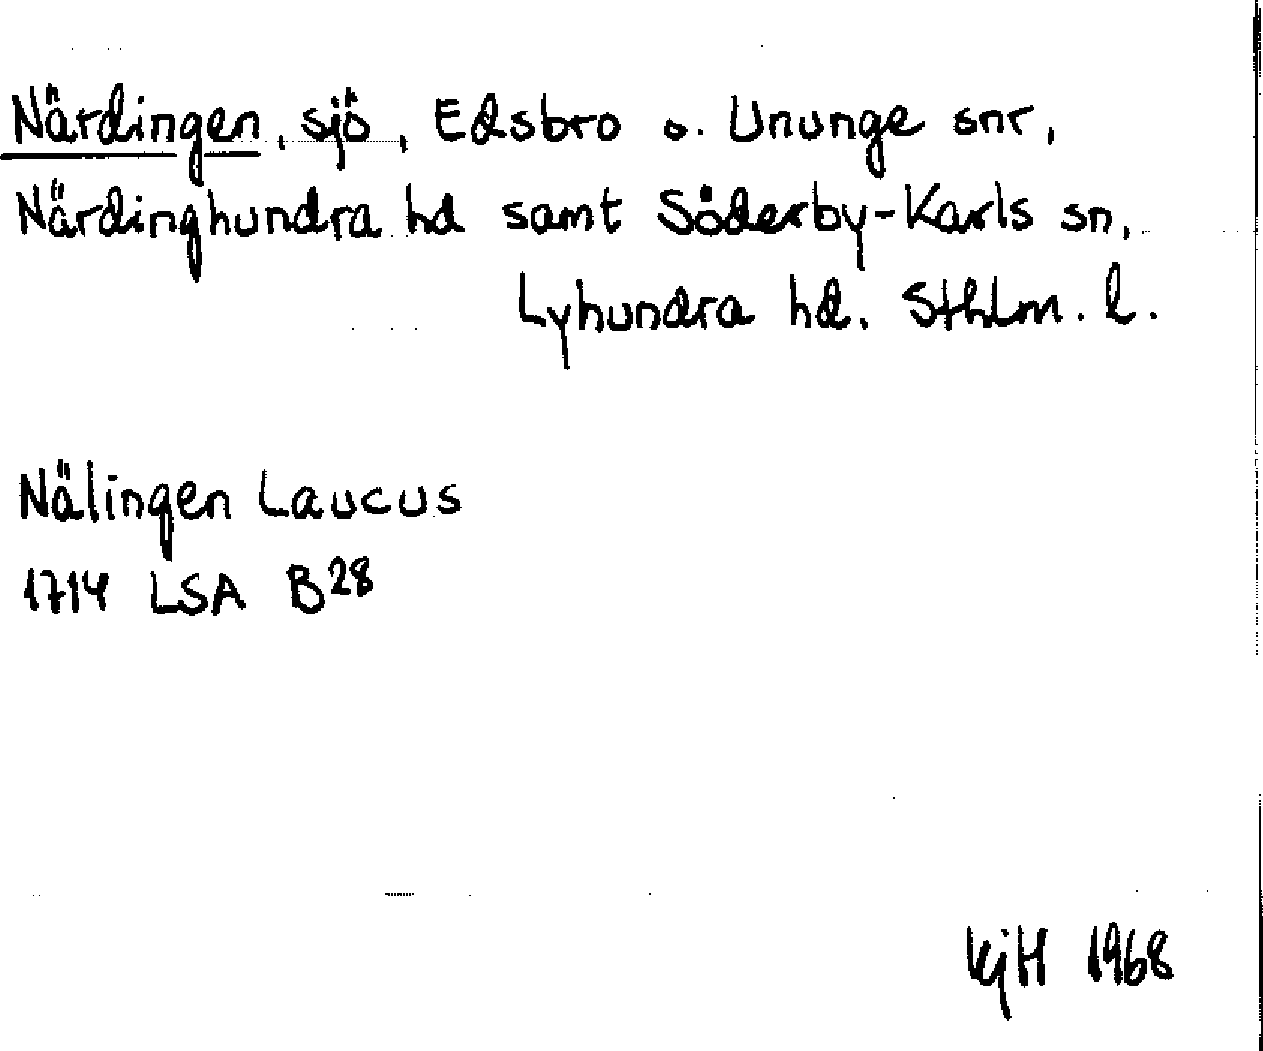 Närdingen, sjö, Edsbro o. Ununge snr,
Närdinghundra hd samt Söderby-Karls sn,
Lyhundra hd. Sthlm. l.
Nälingen Laucus
1714 LSA B28
KjH 1968